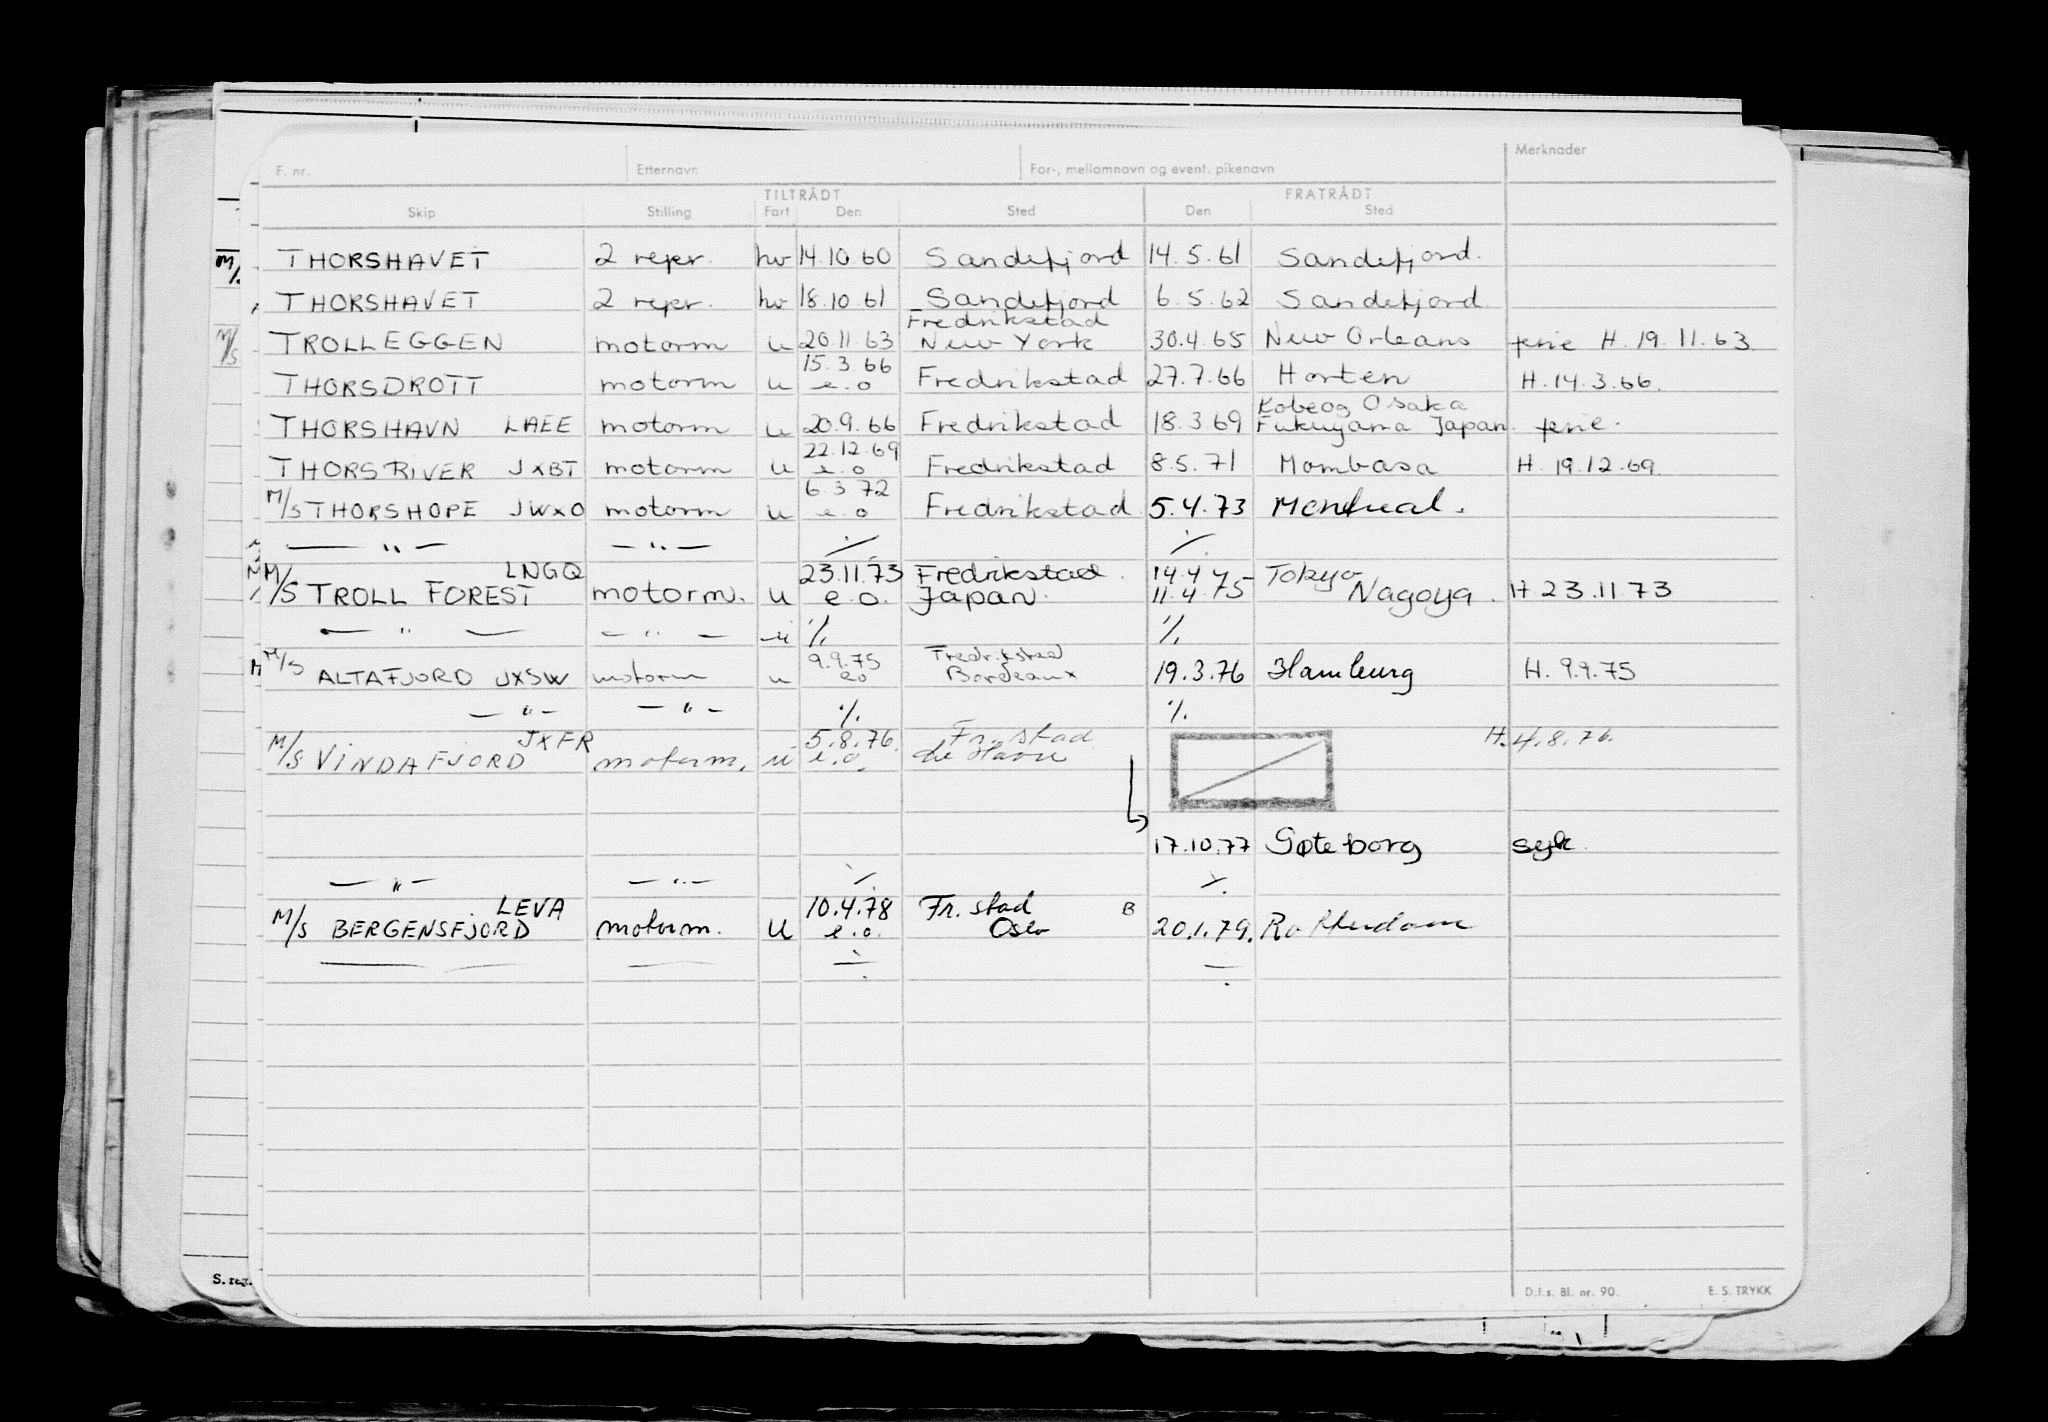 F. nr. Etternavn For-, mellomnavn og event. pikenavn Merknader
TILTRÅDT FRATRÅDT
Skip Stilling Fart Den Sted Den Sted
THORSHAVET 2 repr. hv 14.10 60 Sandefjord 14.5.61 Sandefjord.
THORSHAVET 2 repr. hv 18.10.61 Sandefjord 6.5.62 Sandefjord.
Fredrikstad
TROLLEGGEN motorm u 20.11.63 New York 30.4.65 New Orleans ferie H. 19.11.63.
15.3.66
THORSDROTT motorm u e.o Fredrikstad 27.7.66 Horten H. 14.3.66.
Kobe og Osaka
THORSHAVN LAEE motorm u 20.9.66 Fredrikstad 18.3.69 Fukuyama Japan. ferie.
22.12.69
THORSRIVER JXBT motorm u e.o Fredrikstad 8.5.71 Mombasa H. 19.12.69.
6.3.72
M/S THORSHOPE JWXO motorm u e.o Fredrikstad. 5.4.73 Montreal.
— " — — " — ⁒ ⁒
LNGQ 23.11.73 Fredrikstad. 14.4 Tokyo
M/S TROLL FOREST motorm. u e.o. Japan. 11.4.75 Nagoya. H 23.11.73
— " — — " — u ⁒ ⁒
9.9.75 Fredrikstad
M/S ALTAFJORD JXSW motorm u eo Bordeaux 19.3.76 Hamburg H. 9.9.75
— " — — " — ⁒ ⁒
JXFR 5.8.76. Fr.stad H. 4.8.76.
M/S VINDAFJORD motorm. u e.o. Le Havre
17.10.77 Gøteborg syk.
— " — — " — ⁒ ⁒
LEVA 10.4.78 Fr.stad B
M/S BERGENSFJORD motorm. u e.o. Oslo 20.1.79. Rotterdam
M/
M/S
S. reg.
D.f.s. Bl. nr. 90. E. S. TRYKK